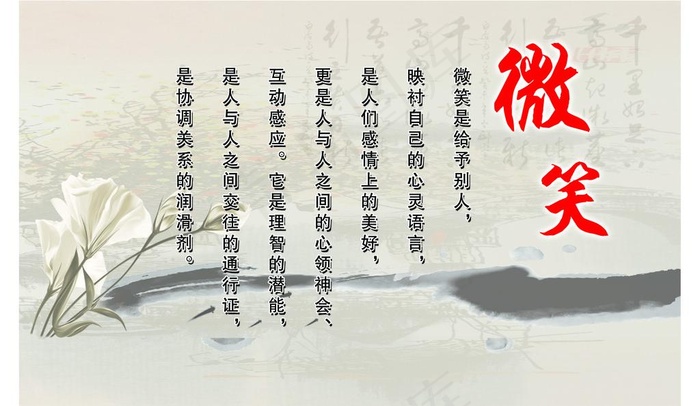 微笑
微笑是给予别人，
映衬自己的心灵语言，
是人们感情上的美好，
更是人与人之间的心领神会、
互动感应。它是理智的潜能，
是人与人之间交往的通行证，
是协调美系的润滑剂。